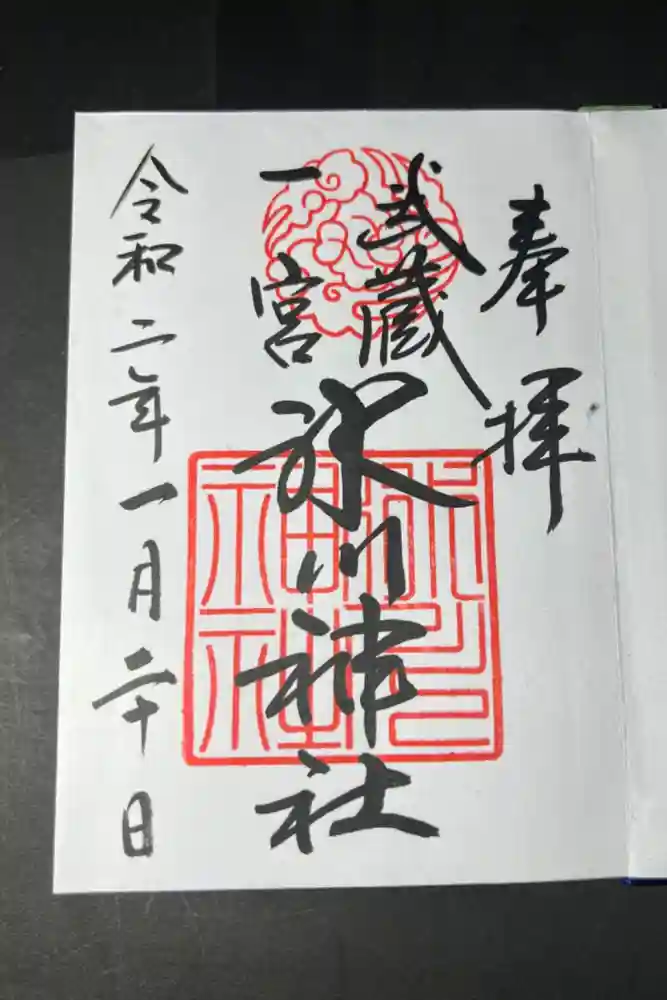 奉拝
武蔵
一宮
氷川神社
令和二年一月二十日
氷川
神社